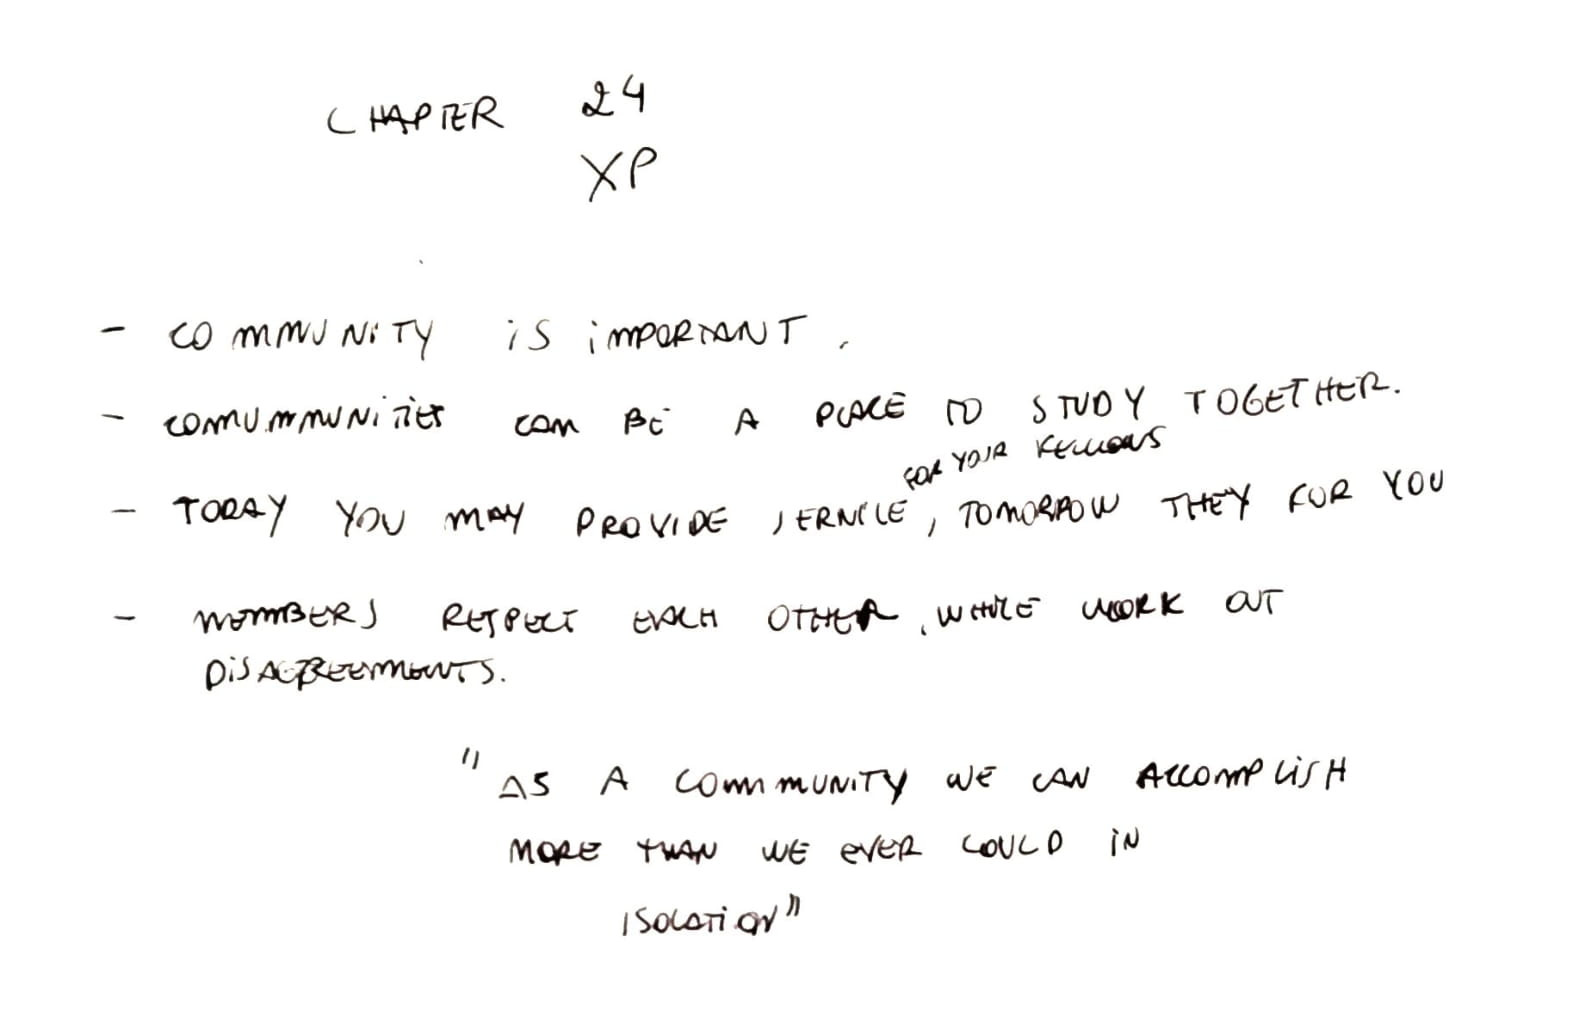 CHAPTER 24
XP
- COMMUNITY iS iMPORTANT.
- COMUMMUNITIES CAN BE A PLACE TO STUDY TOGETHER.
FOR YOUR FELLOWS
- TODAY YOU MAY PROVIDE SERVICE, TOMORROW THEY FOR YOU
- MEMBERS RESPECT EACH OTHER, WHILE WORK OUT
DISAGREEMENTS.
"AS A COMMUNITY WE CAN ACCOMPLISH
MORE THAN WE EVER COULD IN
ISOLATION"